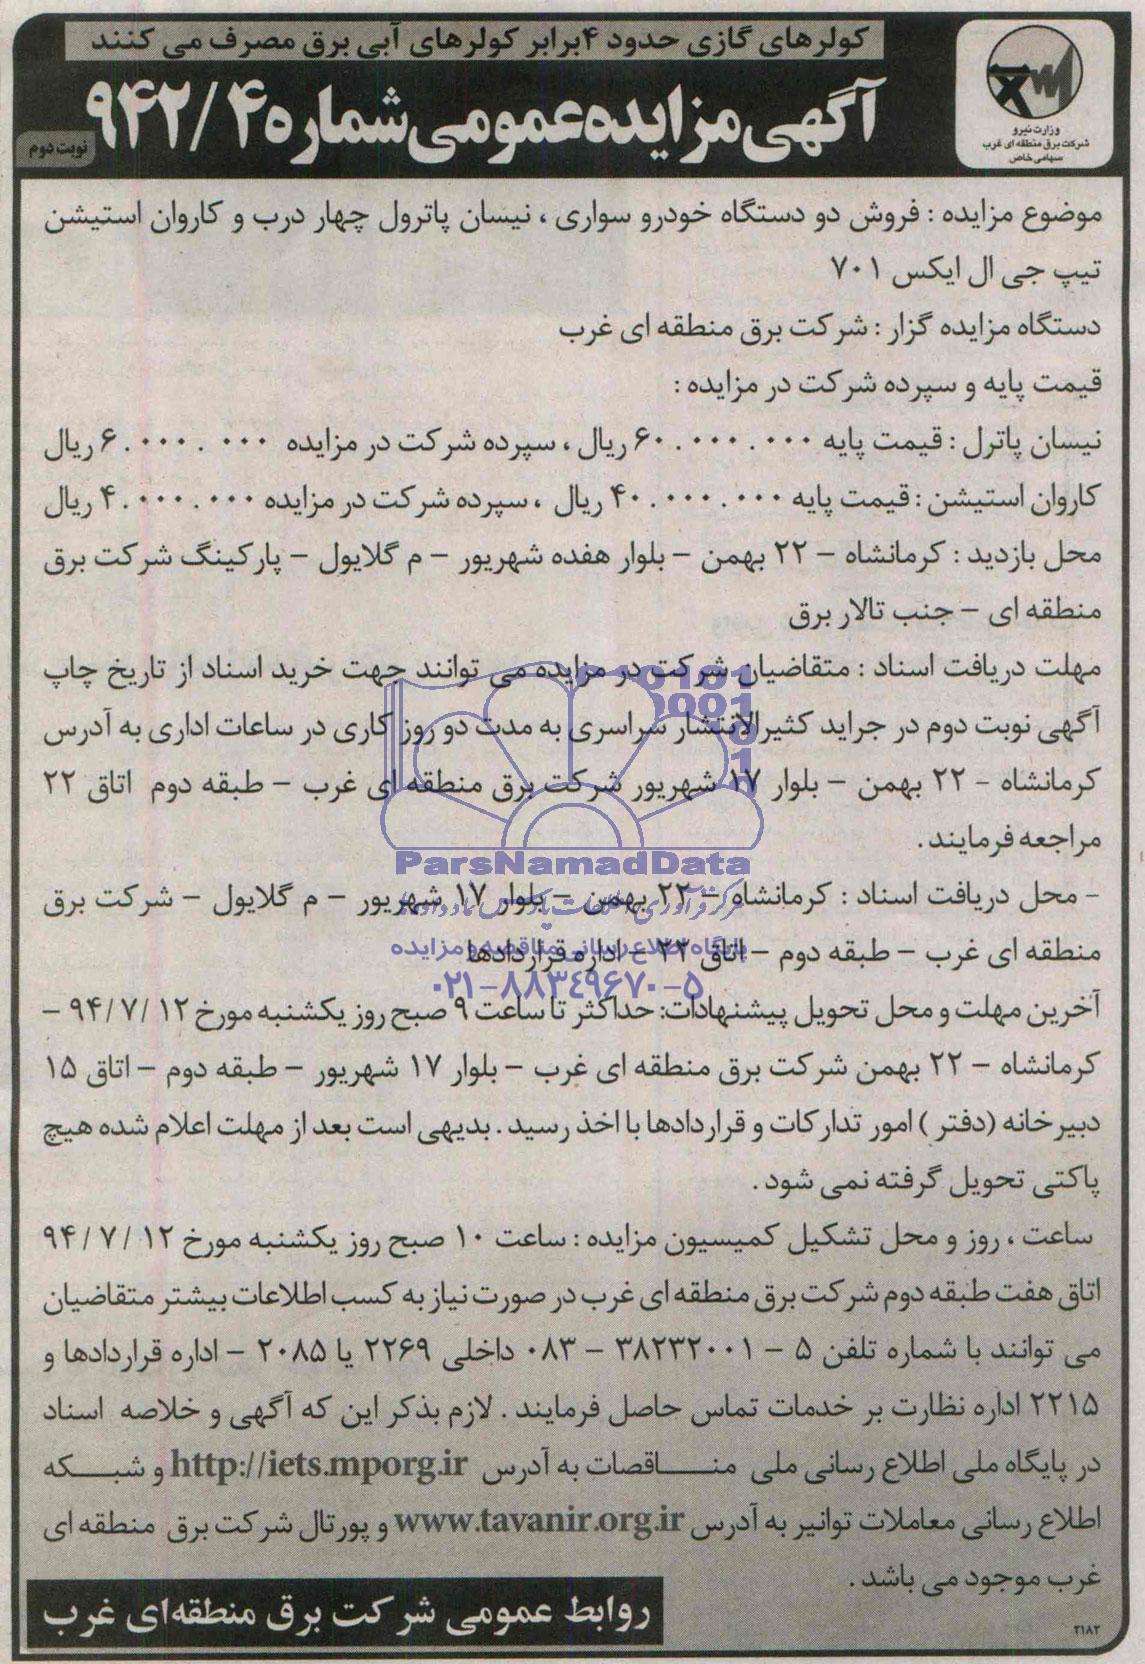 کولرهای گازی حدود ۴برابر کولرهای آبی برق مصرف می کنند
آگهی مزایده عمومی شماره ۹۴۲/۴
نوبت دوم
وزارت نیرو
شرکت برق منطقه ای غرب
سهامی خاص
موضوع مزایده : فروش دو دستگاه خودرو سواری ، نیسان پاترول چهار درب و کاروان استیشن
تیپ جی ال ایکس ۷۰۱
دستگاه مزایده گزار : شرکت برق منطقه ای غرب
قیمت پایه و سپرده شرکت در مزایده :
نیسان پاترل : قیمت پایه ۶۰.۰۰۰.۰۰۰ ریال ، سپرده شرکت در مزایده ۶.۰۰۰.۰۰۰ ریال
کاروان استیشن : قیمت پایه ۴۰.۰۰۰.۰۰۰ ریال ، سپرده شرکت در مزایده ۴.۰۰۰.۰۰۰ ریال
محل بازدید : کرمانشاه – ۲۲ بهمن – بلوار هفده شهریور – م گلایول – پارکینگ شرکت برق
منطقه ای – جنب تالار برق
مهلت دریافت اسناد : متقاضیان شرکت در مزایده می توانند جهت خرید اسناد از تاریخ چاپ
آگهی نوبت دوم در جراید کثیرالانتشار سراسری به مدت دو روز کاری در ساعات اداری به آدرس
کرمانشاه - ۲۲ بهمن – بلوار ۱۷ شهریور شرکت برق منطقه ای غرب – طبقه دوم اتاق ۲۲
مراجعه فرمایند .
ParsNamadData
- محل دریافت اسناد : کرمانشاه – ۲۲ بهمن – بلوار ۱۷ شهریور – م گلایول – شرکت برق
مرکز فرآوری اطلاعات پارس نماد داده‌ها
منطقه ای غرب – طبقه دوم – اتاق ۲۲ – اداره قراردادها
پایگاه اطلاع رسانی مناقصه و مزایده
۰۲۱-۸۸۳۴۹۶۷۰-۵
آخرین مهلت و محل تحویل پیشنهادات: حداکثر تا ساعت ۹ صبح روز یکشنبه مورخ ۹۴/۷/۱۲ –
کرمانشاه – ۲۲ بهمن شرکت برق منطقه ای غرب – بلوار ۱۷ شهریور – طبقه دوم – اتاق ۱۵
دبیرخانه (دفتر ) امور تدارکات و قراردادها با اخذ رسید . بدیهی است بعد از مهلت اعلام شده هیچ
پاکتی تحویل گرفته نمی شود .
ساعت ، روز و محل تشکیل کمیسیون مزایده : ساعت ۱۰ صبح روز یکشنبه مورخ ۹۴/۷/۱۲
اتاق هفت طبقه دوم شرکت برق منطقه ای غرب در صورت نیاز به کسب اطلاعات بیشتر متقاضیان
می توانند با شماره تلفن ۵ – ۳۸۲۳۲۰۰۱ – ۰۸۳ داخلی ۲۲۶۹ یا ۲۰۸۵ – اداره قراردادها و
۲۲۱۵ اداره نظارت بر خدمات تماس حاصل فرمایند . لازم بذکر این که آگهی و خلاصه اسناد
در پایگاه ملی اطلاع رسانی ملی مناقصات به آدرس http://iets.mporg.ir و شبکه
اطلاع رسانی معاملات توانیر به آدرس www.tavanir.org.ir و پورتال شرکت برق منطقه ای
غرب موجود می باشد .
روابط عمومی شرکت برق منطقه‌ای غرب
۲۱۸۲